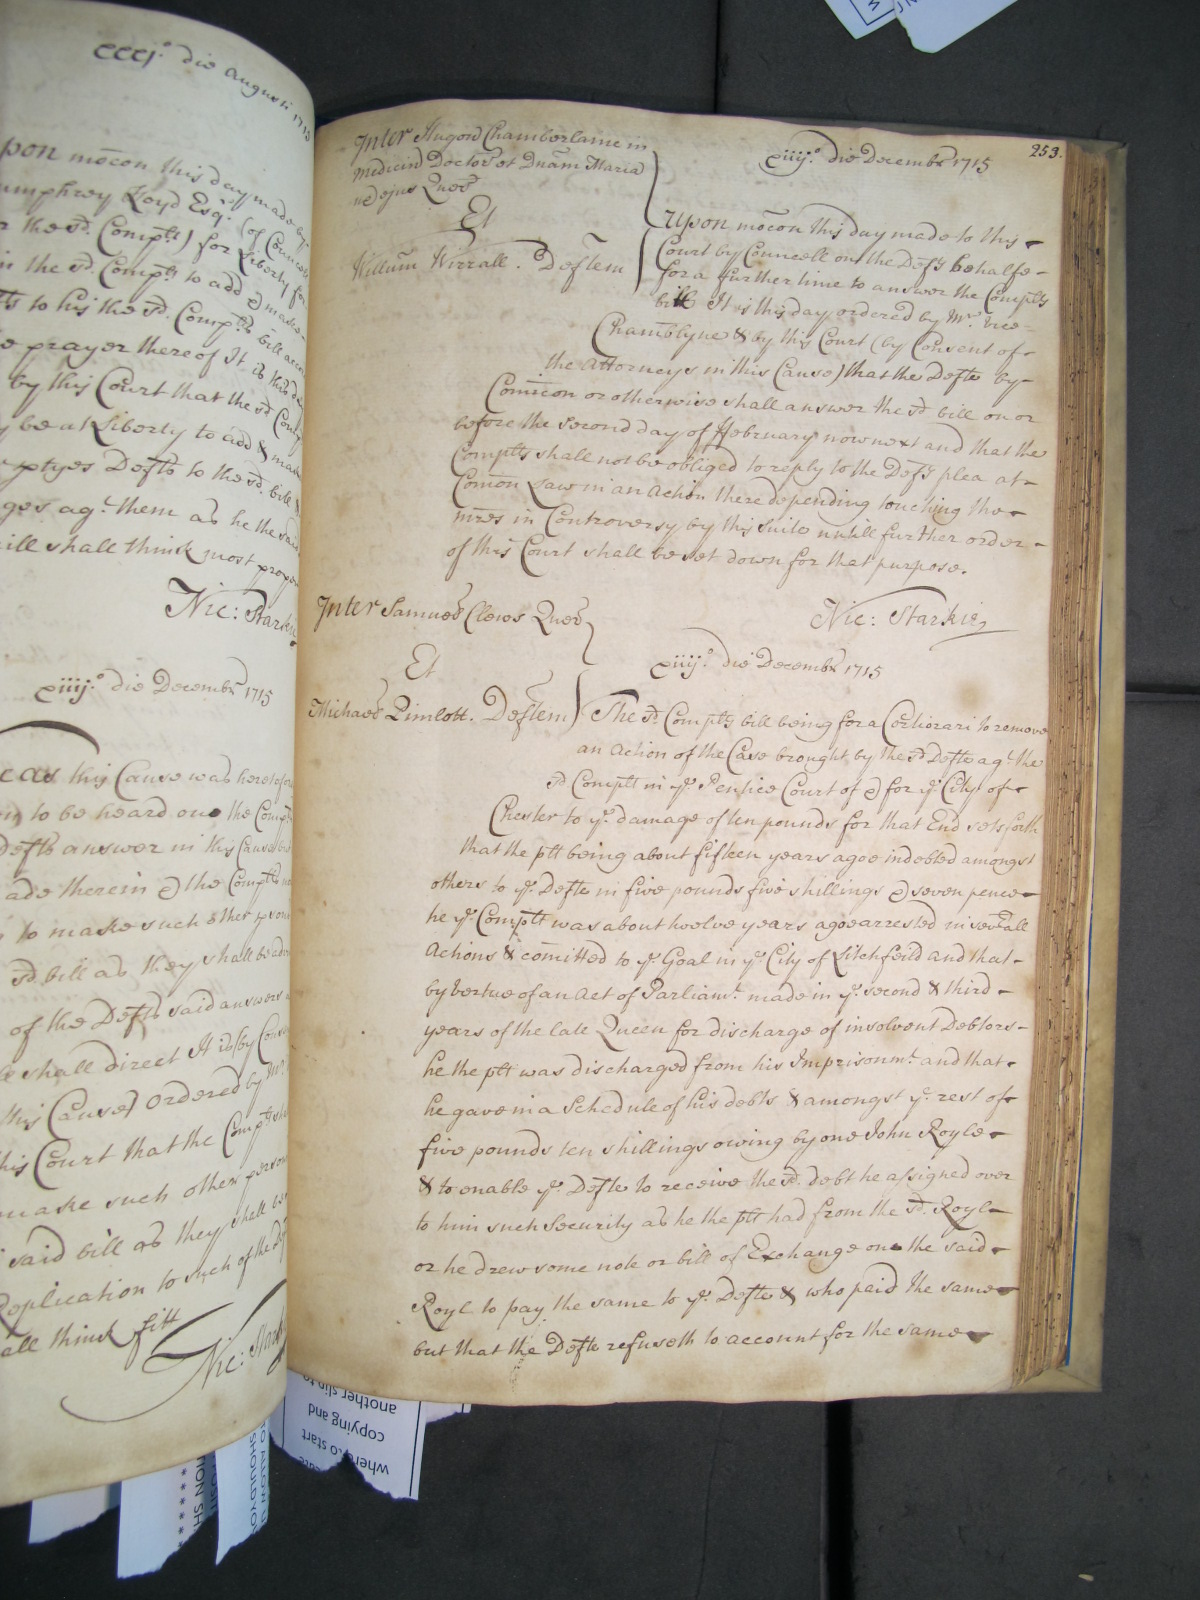 ccccj.o die Augusti 1715
pon mocon this day made by
umphrey Loyd Esqr. (of Councell
r the sd. Complt) for Liberty for
in the sd. Complt to add & make
ts to his the sd. Complts bill acco
e prayer thereof It is this day
by this Court that the sd Comp
y be at Liberty to add & make
ptyes Defts to the sd. bill &
ges agt. them as he the said
ill shall think most proper
Nic: Starkie
xiiij.o die Decembr 1715
eas this Cause was heretofore
to be heard one the Complts
Defts answer in this Cause
ade therein & the Complts
to make such other person
sd. bill as they shall be
of the Defts said answers
e shall direct It is (by Consent
this Cause) Ordered by Mr.
his Court that the Complts
make such other person
said bill as they shall be
Replication to such of the Def
all think fitt
Nic: Starkie
253.
Inter Hugon Chamberlaine in
medicin Doctor et Dnam Maria
ux ejus Quer
Et
Willum Wirrall. Deftem
xiiij.o die Decembr 1715
Upon mocon this day made to this
Court by Councell on the Defts behalfe
for a further time to answer the Complts
bill It is this day ordered by Mr. Vice
Chamblyne & by this Court (by Consent of
the Attorneys in this Cause) that the Defte by
Comicon or otherwise shall answer the sd bill on or
before the second day of ffebruary now next and that the
Complts shall not be obliged to reply to the Defts plea at
Comon Law in an Action there depending touching the
mres in Controversy by this suite untill further order
of this Court shall be set down for that purpose.
Nic: Starkie
Inter Samuel Clews Quer
Et
Michael Pimlott. Deftem
xiiij.o die Decembr 1715
The sd. Complts bill being for a Certiorari to remove
an Action of the Case brought by the sd Defte agt. the
sd Complt in ye. Pentice Court of & for ye. City of
Chester to ye. damage of ten pounds for that End sets forth
that the plt being about fifteen years agoe indebted amongst
others to ye. Defte in five pounds five shillings & seven pence
he ye. Complt was about twelve years agoe arrested in severall
Actions & comitted to ye. Goal in ye. City of Litchfeild and that
by vertue of an Act of Parliamt. made in ye. second & third
years of the late Queen for discharge of insolvent Debtors
he the plt was discharged from his Imprisonmt. and that
he gave in a Schedule of his debts & amongst ye. rest of
five pounds ten shillings owing by one John Royle
& to enable ye. Defte to receive the sd. debt he assigned over
to him such Security as he the plt had from the sd. Royl
or he drew some note or bill of Exchange one the said
Royl to pay the same to ye. Defte & who paid the same
but that the Defte refuseth to account for the same
another slip to
copying and
where to start